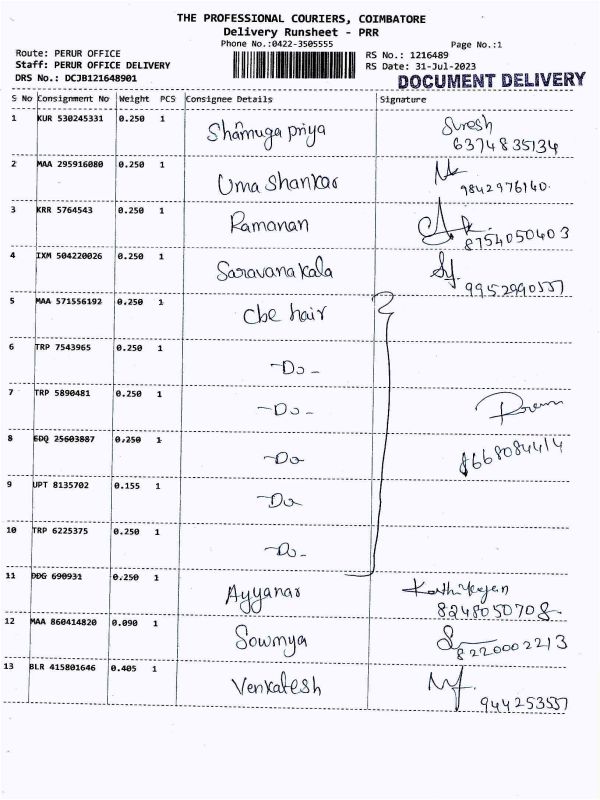 THE PROFESSIONAL COURIERS, COIMBATORE
Delivery Runsheet - PRR
Phone No.:0422-3505555 Page No.:1
Route: PERUR OFFICE RS No.: 1216489
Staff: PERUR OFFICE DELIVERY RS Date: 31-Jul-2023
DRS No.: DCJB121648901 DOCUMENT DELIVERY
S No Consignment No Weight PCS Consignee Details Signature
1 KUR 530245331 0.250 1 Shamuga priya Suresh
6374835134
2 MAA 295916080 0.250 1 Uma Shankar
9842976140.
3 KRR 5764543 0.250 1 Ramanan
8754050403
4 IXM 504220026 0.250 1 Saravana kala
9952990557
5 MAA 571556192 0.250 1 Cbe hair
6 TRP 7543965 0.250 1 -Do-
7 TRP 5890481 0.250 1 -Do-
8 EDQ 25603887 0.250 1 -Do
8668084414
9 UPT 8135702 0.155 1 -Do
10 TRP 6225375 0.250 1 -Do-
11 DDG 690931 0.250 1 Ayyanar Karthikeyan
8248050708
12 MAA 860414820 0.090 1 Sowmya
8220002213
13 BLR 415801646 0.405 1 Venkatesh
944253557